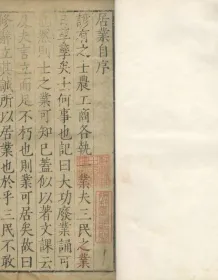 居業自序
諺有之士農工商各執業夫三民之業
學矣士何事也記曰大功廢業誦可
士之業可知已蓋似以著文課云
夫言立而足不朽也則業可居矣故曰
修辭立其誠所以居業也於乎三民不敢